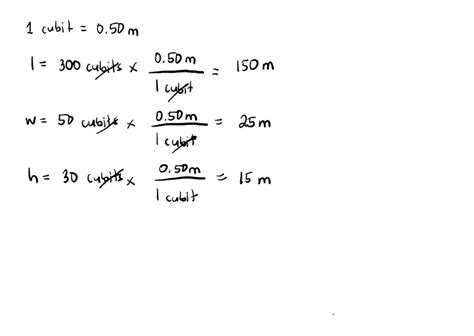 1 cubit = 0.50 m
l = 300 cubits × 0.50 m / 1 cubit = 150 m
w = 50 cubits × 0.50 m / 1 cubit = 25 m
h = 30 cubits × 0.50 m / 1 cubit = 15 m